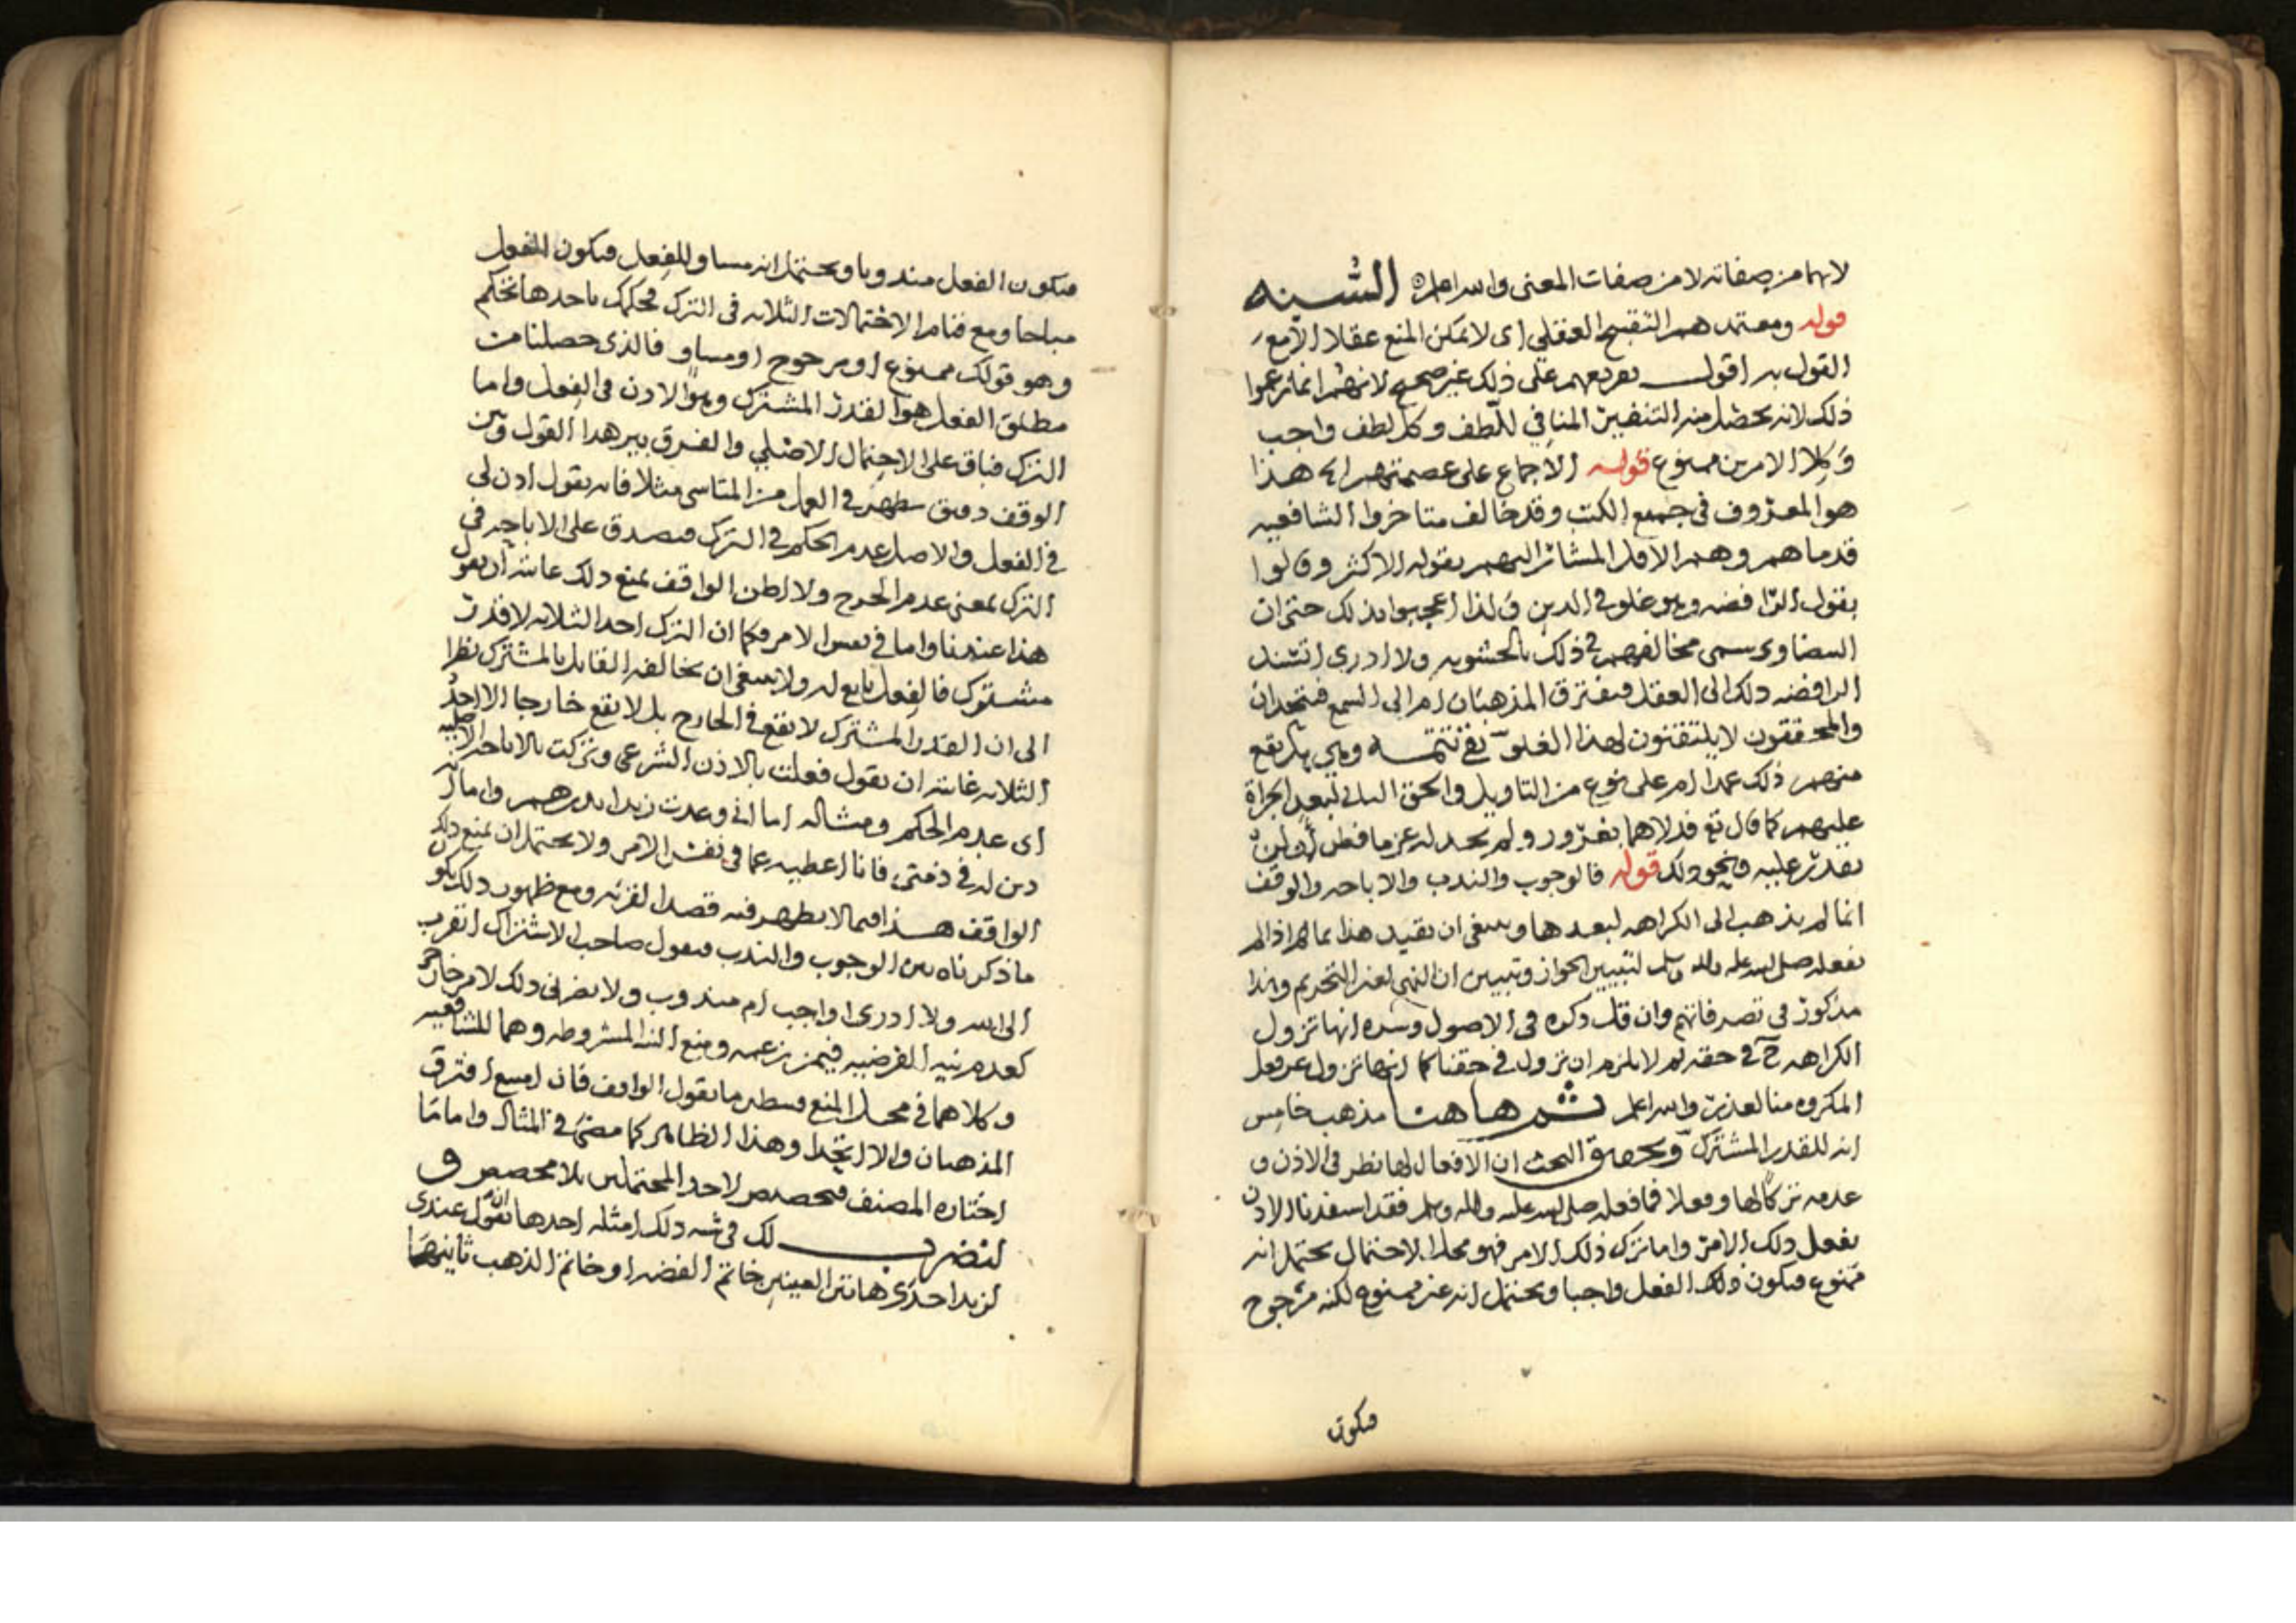 لانهما من صفاته لا من صفات المعنى والله اعلم ه السنه
قوله ومعتمدهم التقبيح العقلي اى لا يمكن المنع عقلا الا مع
القول به اقول تفريعهم على ذلك غير صحيح لانهم انما زعموا
ذلك لانه يحصل منه التنفير المنافي للطف وكل لطف واجب
وكلا الامرين ممنوع قوله الاجماع على عصمتهم الخ هذا
هو المعروف في جميع الكتب وقد خالف متاخروا الشافعيه
قدماهم وهم الاقل المشار اليهم بقوله الاكثر وقالوا
بقول الرافضه وهو غلو في الدين ولذا اعجبوا بذلك حتى ان
البيضاوي سمى مخالفهم في ذلك بالحشويه ولا ادري استند
الرافضه ذلك الى العقل فيفترق المذهبان ام الى السمع فيتحدان
والمحققون لا يلتفتون لهذا الغلو تتمه وهي هل يقع
منهم ذلك عمدا ام على نوع من التاويل والحق الثاني لبعد الجراة
عليهم كما قال تع فدلاهما بغرور ولم نجد له عزما فظن ان لن
نقدر عليه ونحو ذلك قوله فالوجوب والندب والاباحه والوقف
انما لم يذهب الى الكراهه لبعدها وينبغي ان يقيد هذا بما اذا لم
يفعله صلى الله عليه واله وسلم لتبيين الجواز وتبيين ان النهي لغير التحريم وهذا
مذكور في تصرفاتهم وان قل ذكره في الاصول وسره انها تزول
الكراهه ح في حقه ثم لا يلزم ان تزول في حقنا كما انها تزول عن فعل
المكروه منا لعذر والله اعلم ثم هاهنا مذهب خامس
انه للقدر المشترك وتحقيق البحث ان الافعال لها نظر في الاذن و
عدمه تركا لها وفعلا فما فعله صلى الله عليه واله وسلم فقد استفدنا الاذن
بفعل ذلك الامر واما ترك ذلك الامر فهو محل الاحتمال يحتمل انه
ممنوع فيكون ذلك الفعل واجبا ويحتمل انه غير ممنوع لكنه مرجوح
فيكون
فيكون الفعل مندوبا ويحتمل انه مساو للفعل فيكون الفعل
مباحا ومع قيام الاحتمالات الثلاثه في الترك فحكمك باحدها تحكم
وهو قولك ممنوع او مرجوح او مساو فالذى حصلنا من
مطلق الفعل هو القدر المشترك وهو الاذن في الفعل واما
الترك فباق على الاحتمال الاصلي والفرق بين هذا القول وبين
الوقف دقيق يظهر في العمل من المتاسي مثلا فانه يقول اذن لي
في الفعل والاصل عدم الحكم في الترك فيصدق على الاباحه في
الترك بمعنى عدم الحرج ولا اظن الواقف يمنع ذلك غايته ان يقول
هذا عندنا واما في نفس الامر فكما ان الترك احد الثلاثه لا قدر
مشترك فالفعل تابع له ولا ينبغي ان يخالفه القايل بالمشترك نظرا
الى ان القدر المشترك لا يقع في الخارج بل لا يقع خارجا الا احد
الثلاثه غايته ان يقول فعلت بالاذن الشرعي وتركت بالاباحه الاصليه
اى عدم الحكم ومثاله اما اني وعدت زيدا بدرهم واما انه
دين له في ذمتى فانا اعطيه عما في نفس الامر ولا يحتمل ان يمنع ذلك
الواقف هذا فيما لا يظهر فيه قصد القربه ومع ظهور ذلك يكون
ما ذكرناه بين الوجوب والندب فيقول صاحب الاشتراك اتقرب
الى الله ولا ادري اواجب ام مندوب ولا يضرني ذلك لامر خارج
كعدم نيه الفرضيه فيمن زعمه ومنع النذر المشروطه وهما للشافعيه
وكلاهما في محل المنع فينظر ما يقول الواقف فان امتنع افترق
المذهبان والا اتحدا وهذا الظاهر كما مضى في المثال واما ما
اختاره المصنف فتخصيص لاحد المحتملين بلا مخصص و
لنضرب لك في شبه ذلك امثله احدها ان تقول عندى
لزيد احدى هاتين العينين خاتم الفضه او خاتم الذهب ثانيها